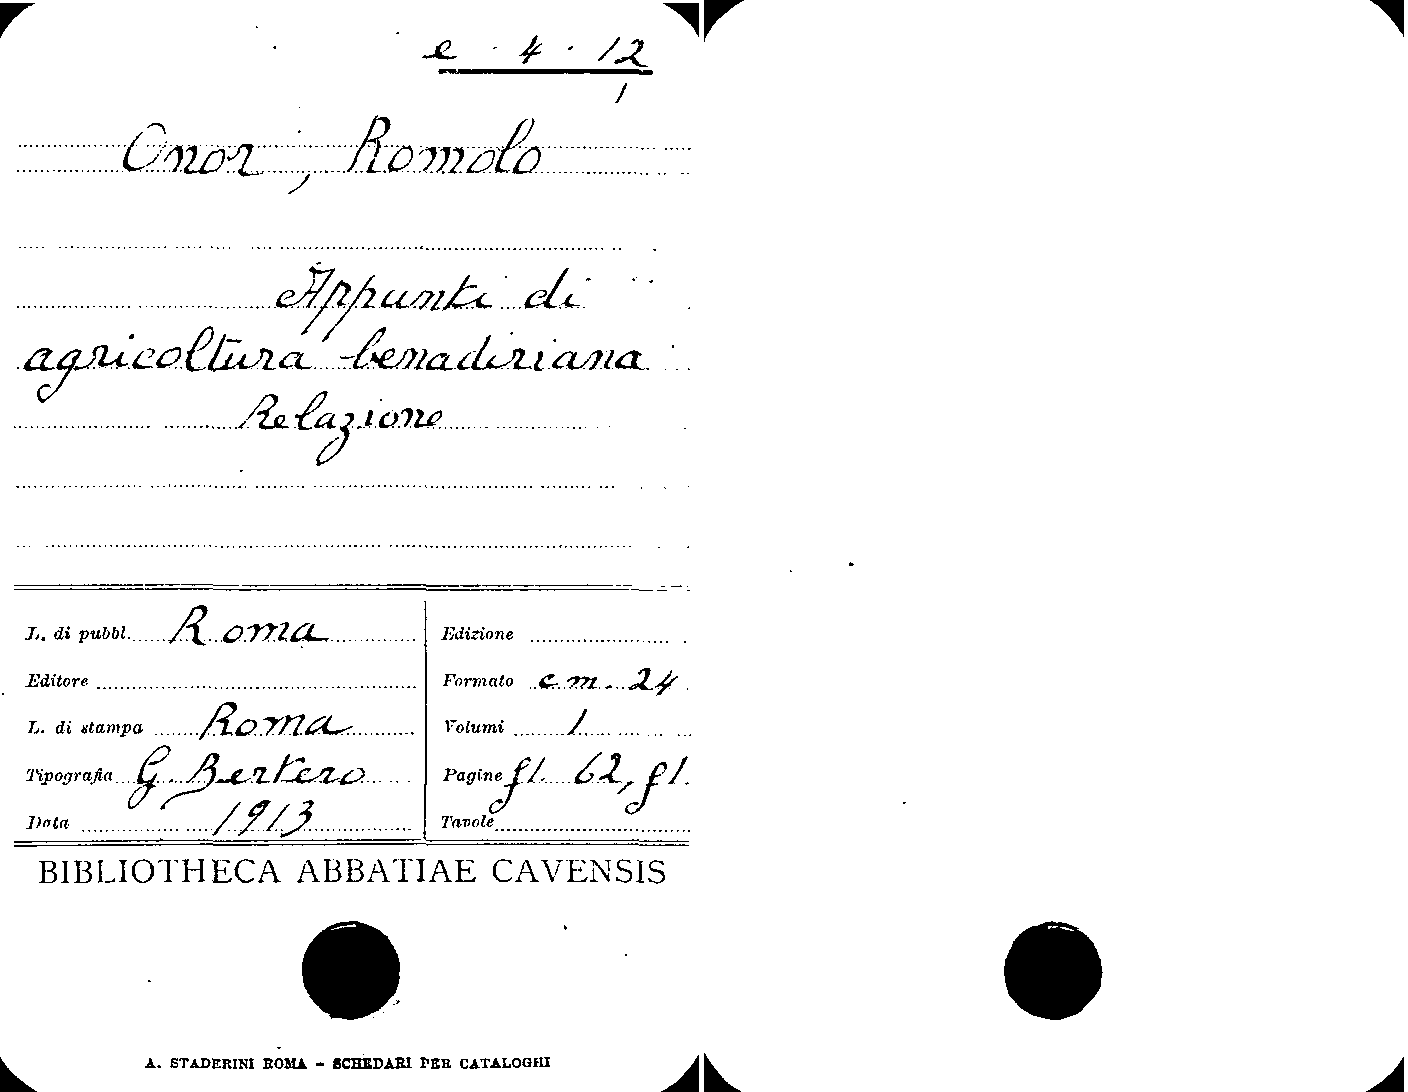 e · 4 · 12
1
Onor, Romolo
Appunti di
agricoltura benadiriana
Relazione
L. di pubbl. Roma
Editore
L. di stampa Roma
Tipografia G. Bertero
Data 1913
Edizione
Formato cm. 24
Volumi 1
Pagine f1. 62, f1.
Tavole
BIBLIOTHECA ABBATIAE CAVENSIS
A. STADERINI ROMA - SCHEDARI PER CATALOGHI